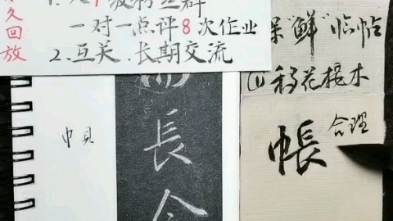 久回放
一对一点评8次作业
2.互关.长期交流
保"鲜"临帖
(1)移花接木
巾贝
長
帳
合理